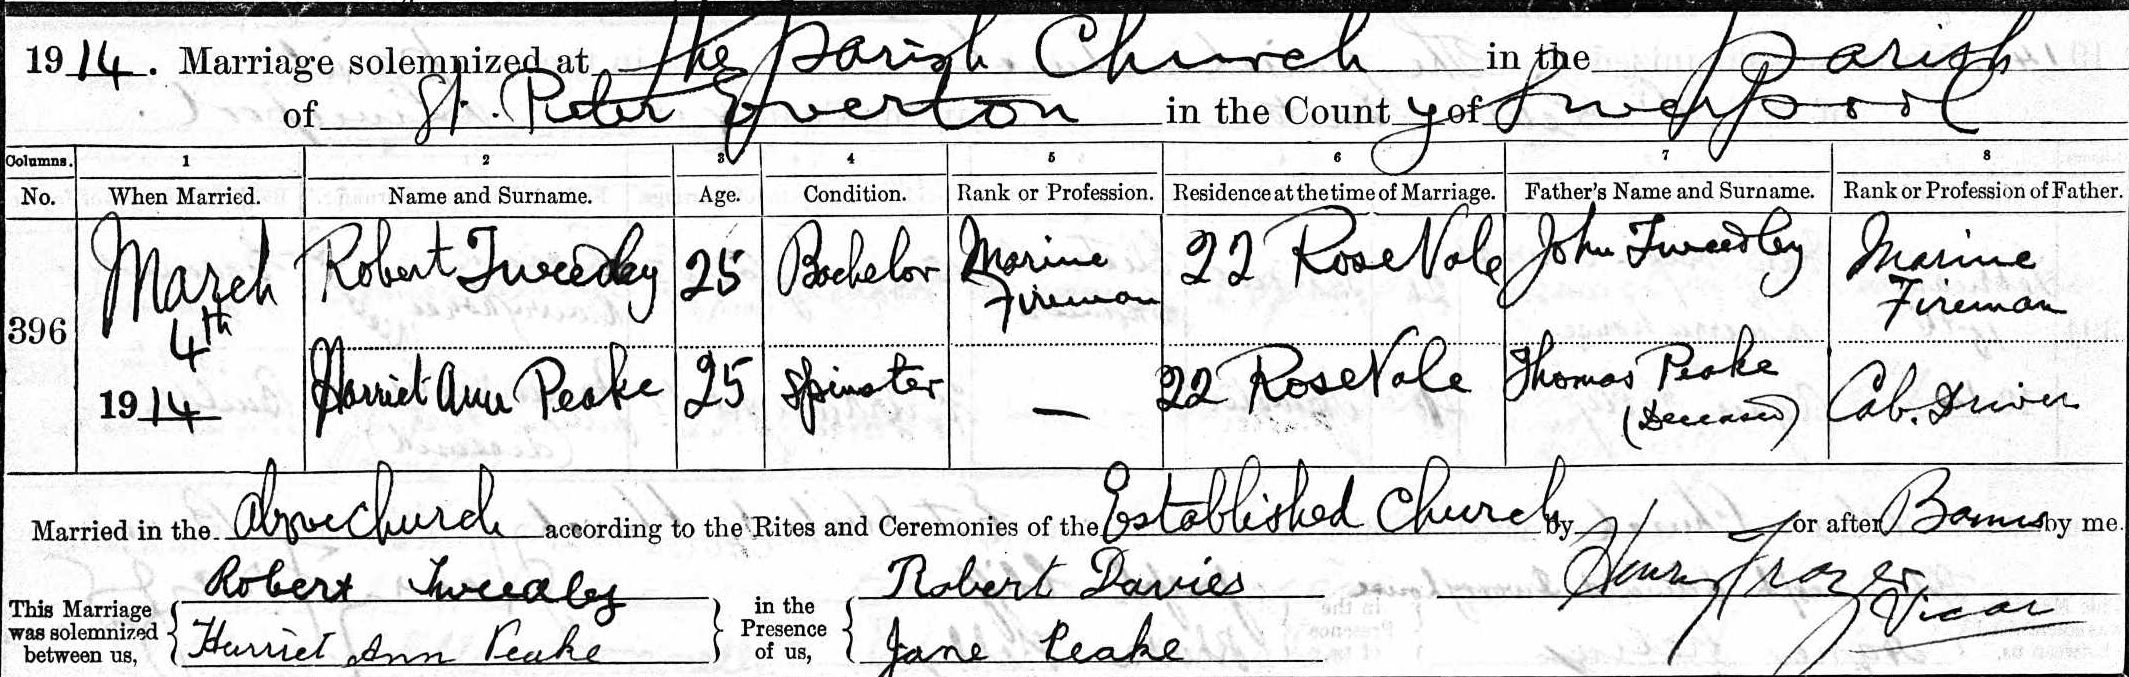 1914. Marriage solemnized at the Parish Church in the Parish
of St. Peter Everton in the County of Liverpool
Columns. 1 2 3 4 5 6 7 8
No. When Married. Name and Surname. Age. Condition. Rank or Profession. Residence at the time of Marriage. Father's Name and Surname. Rank or Profession of Father.
396 March 4th 1914
Robert Tweedley 25 Bachelor Marine Fireman 22 Rose Vale John Tweedley Marine Fireman
Harriet Ann Peake 25 Spinster — 22 Rose Vale Thomas Peake (Deceased) Cab. Driver
Married in the above Church according to the Rites and Ceremonies of the Established Church by — or after Banns by me.
This Marriage was solemnized between us, { Robert Tweedley } in the Presence of us, { Robert Davies Henry Frazer
Harriet Ann Peake Jane Peake Vicar